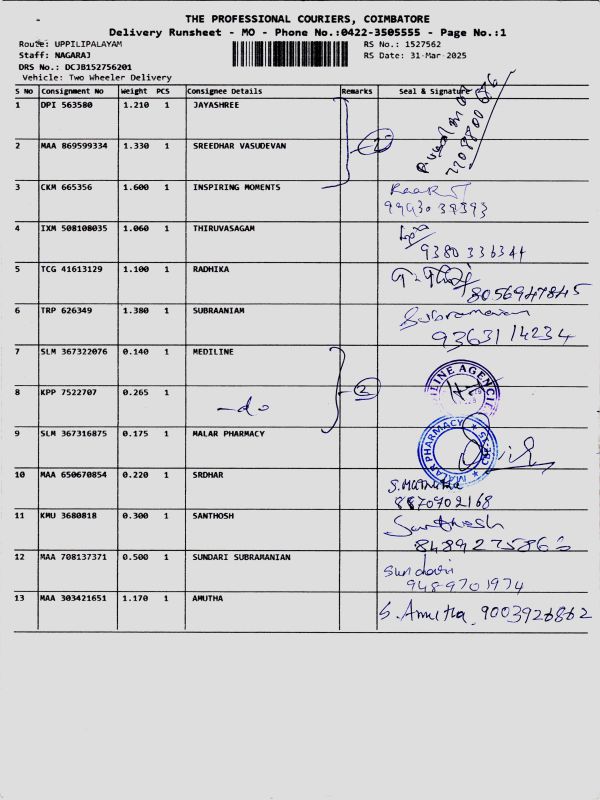 THE PROFESSIONAL COURIERS, COIMBATORE
Delivery Runsheet - MO - Phone No.:0422-3505555 - Page No.:1
Route: UPPILIPALAYAM
RS No.: 1527562
Staff: NAGARAJ
RS Date: 31-Mar-2025
DRS No.: DCJB152756201
Vehicle: Two Wheeler Delivery
S No Consignment No Weight PCS Consignee Details Remarks Seal & Signature
1 DPI 563580 1.210 1 JAYASHREE
2 MAA 869599334 1.330 1 SREEDHAR VASUDEVAN
3 CKM 665356 1.600 1 INSPIRING MOMENTS
4 IXM 508108035 1.060 1 THIRUVASAGAM
9380336344
5 TCG 41613129 1.100 1 RADHIKA
8056947845
6 TRP 626349 1.380 1 SUBRAANIAM
Subramanian
9363114234
7 SLM 367322076 0.140 1 MEDILINE
2
8 KPP 7522707 0.265 1
-do
9 SLM 367316875 0.175 1 MALAR PHARMACY
MALAR PHARMACY
10 MAA 650670854 0.220 1 SRDHAR
8870902168
11 KMU 3680818 0.300 1 SANTHOSH
Santhosh
12 MAA 708137371 0.500 1 SUNDARI SUBRAMANIAN
Sundari
9489701974
13 MAA 303421651 1.170 1 AMUTHA
S. Amutha 9003926862